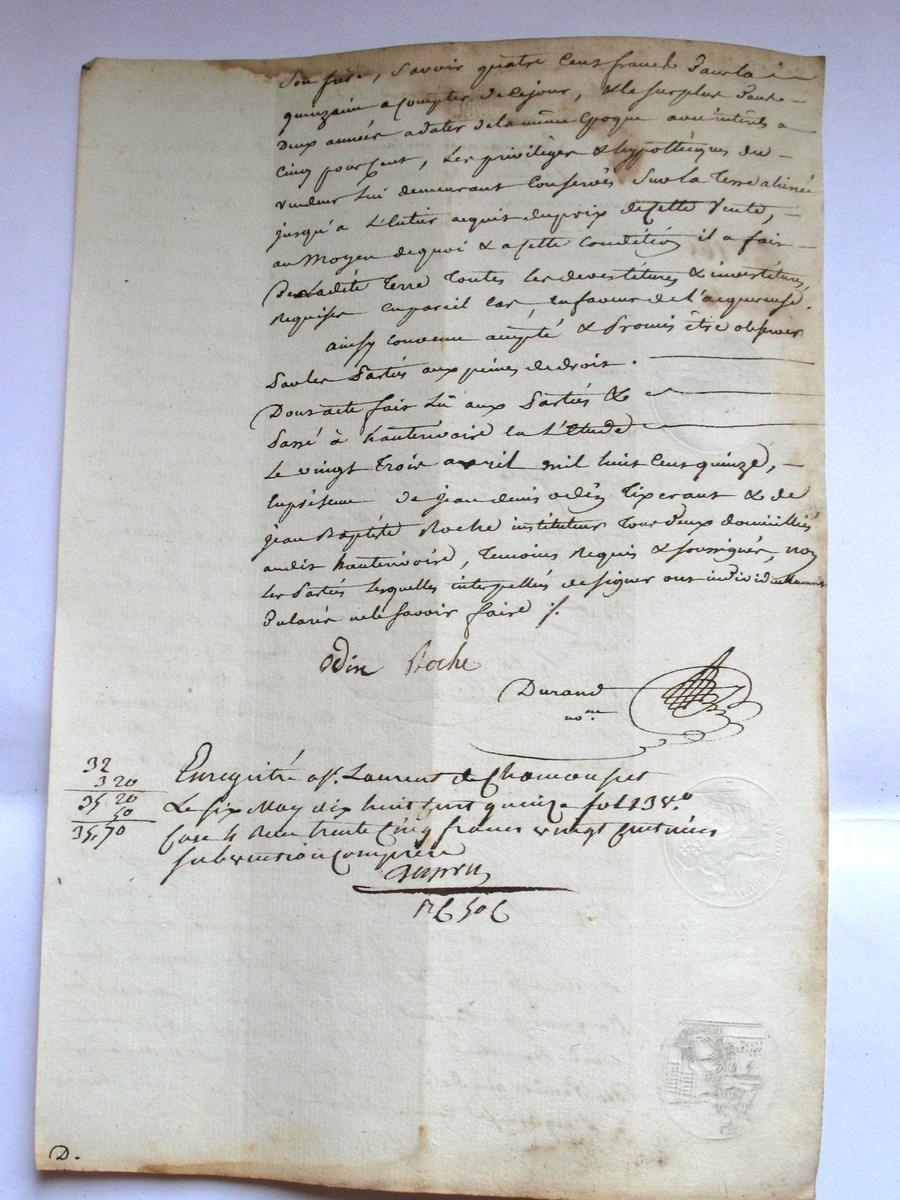 Son frère, Savoir quatre Cent francs Dans la
quinzaine a compter de ce jour, & le surplus Dans
Deux années a dater de la même Epoque avec intérêts a
Cinq pour Cent, Les privilèges & hypothèques du
vendeur lui demeurant Conservés Sur la Terre alienée
jusqu'a L'Entier acquit du prix de Cette Vente,
au moyen de quoi & a Cette Condition il a fait
De Ladite Terre Toutes les devestitures & investitures,
Requises En pareil Cas, En faveur de l'acquereuse.
ainsy convenu accepté & Promis être observer
Par les Parties aux peines de droit.
Dont acte fait Lû aux Parties &
Passé à hauterivoire En l'Etude
Le vingt Trois avril mil huit Cent quinze,
En présence de jean denis odin Tixerant & de
jean Baptiste Roche instituteur Tous deux domiciliés
audit hauterivoire, Temoins Requis & Soussignés, non
Les Parties Lesquelles interpellées de signer ont individuellement
Déclaré ne le Savoir faire ./.
Odin Roche
Durand
nore
32
3 20
35 20
50
35,70
Enregistré à St. Laurent de Chamousset
Le Six May dix huit Cent quinze fol 138 vo
Case 4 Reçu trente Cinq francs vingt Centimes
Subvention Comprise
D.